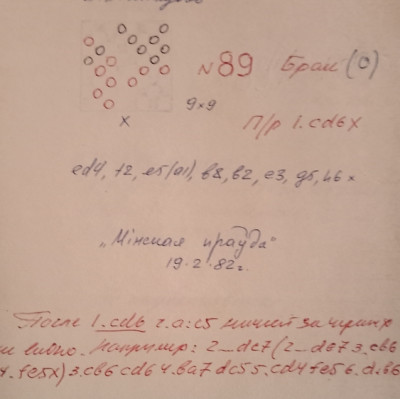 № 89 Брак (0)
9x9
X П/р 1.cd6X
ed4, f2, e5(a1), b8, b2, e3, g5, h6 x
„Мінская праўда"
19.2.82г.
После 1.cd6 г.a:c5 ничьей за черных
не видно. Например: 2_dc7(2_de7 3.cb6
4.fe5x)3.cb6 cd6 4.ba7 dc5 5.cd4 fe5 6.d:b6